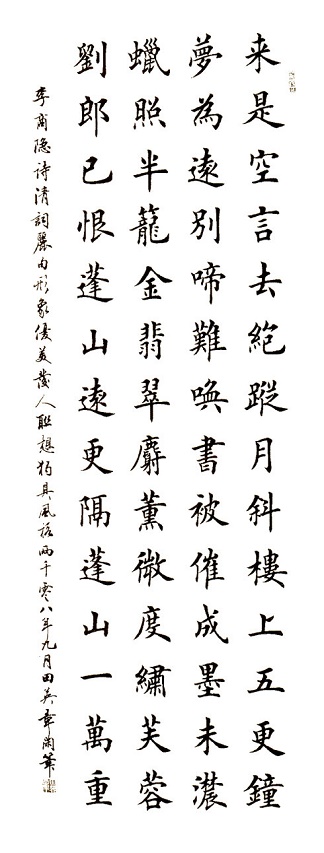 来是空言去絕蹤月斜樓上五更鐘
夢為遠別啼難喚書被催成墨未濃
蠟照半籠金翡翠麝薰微度繡芙蓉
劉郎已恨蓬山遠更隔蓬山一萬重
李商隐詩清詞麗句形象優美發人聯想獨具風格兩千零八年九月田英章筆